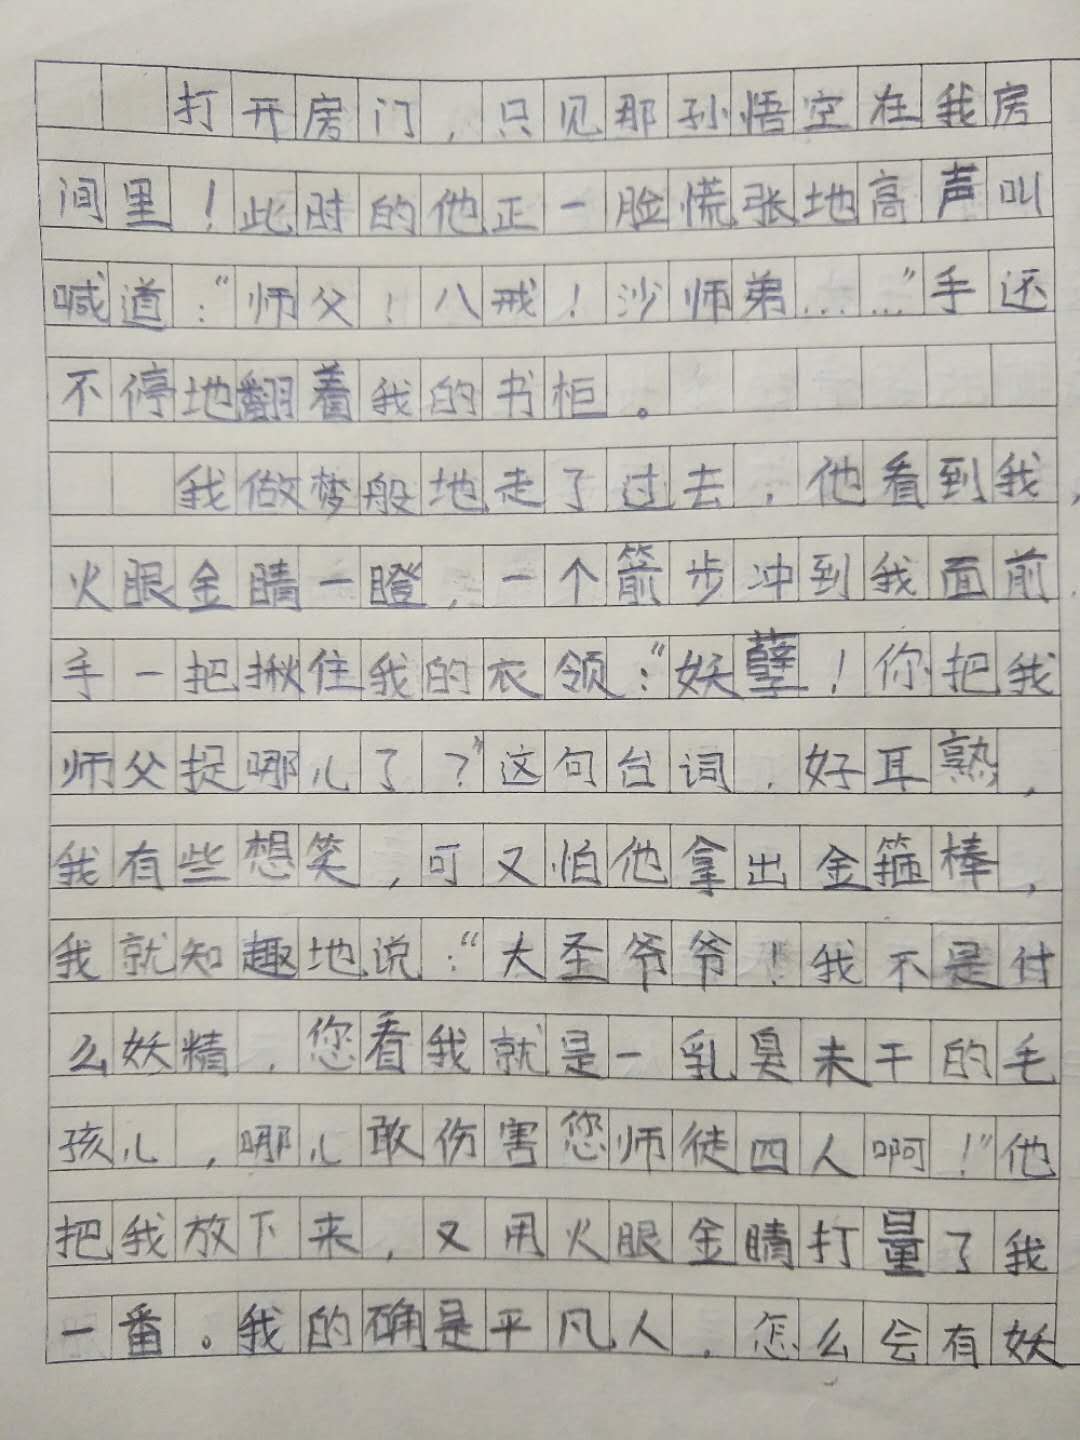 打开房门，只见那孙悟空在我房
间里！此时的他正一脸慌张地高声叫
喊道：“师父！八戒！沙师弟……”手还
不停地翻着我的书柜。
我做梦般地走了过去，他看到我，
火眼金睛一瞪，一个箭步冲到我面前，
手一把揪住我的衣领：“妖孽！你把我
师父捉哪儿了？”这句台词，好耳熟，
我有些想笑，可又怕他拿出金箍棒，
我就知趣地说：“大圣爷爷！我不是什
么妖精，您看我就是一乳臭未干的毛
孩儿，哪儿敢伤害您师徒四人啊！”他
把我放下来，又用火眼金睛打量了我
一番。我的确是平凡人，怎么会有妖